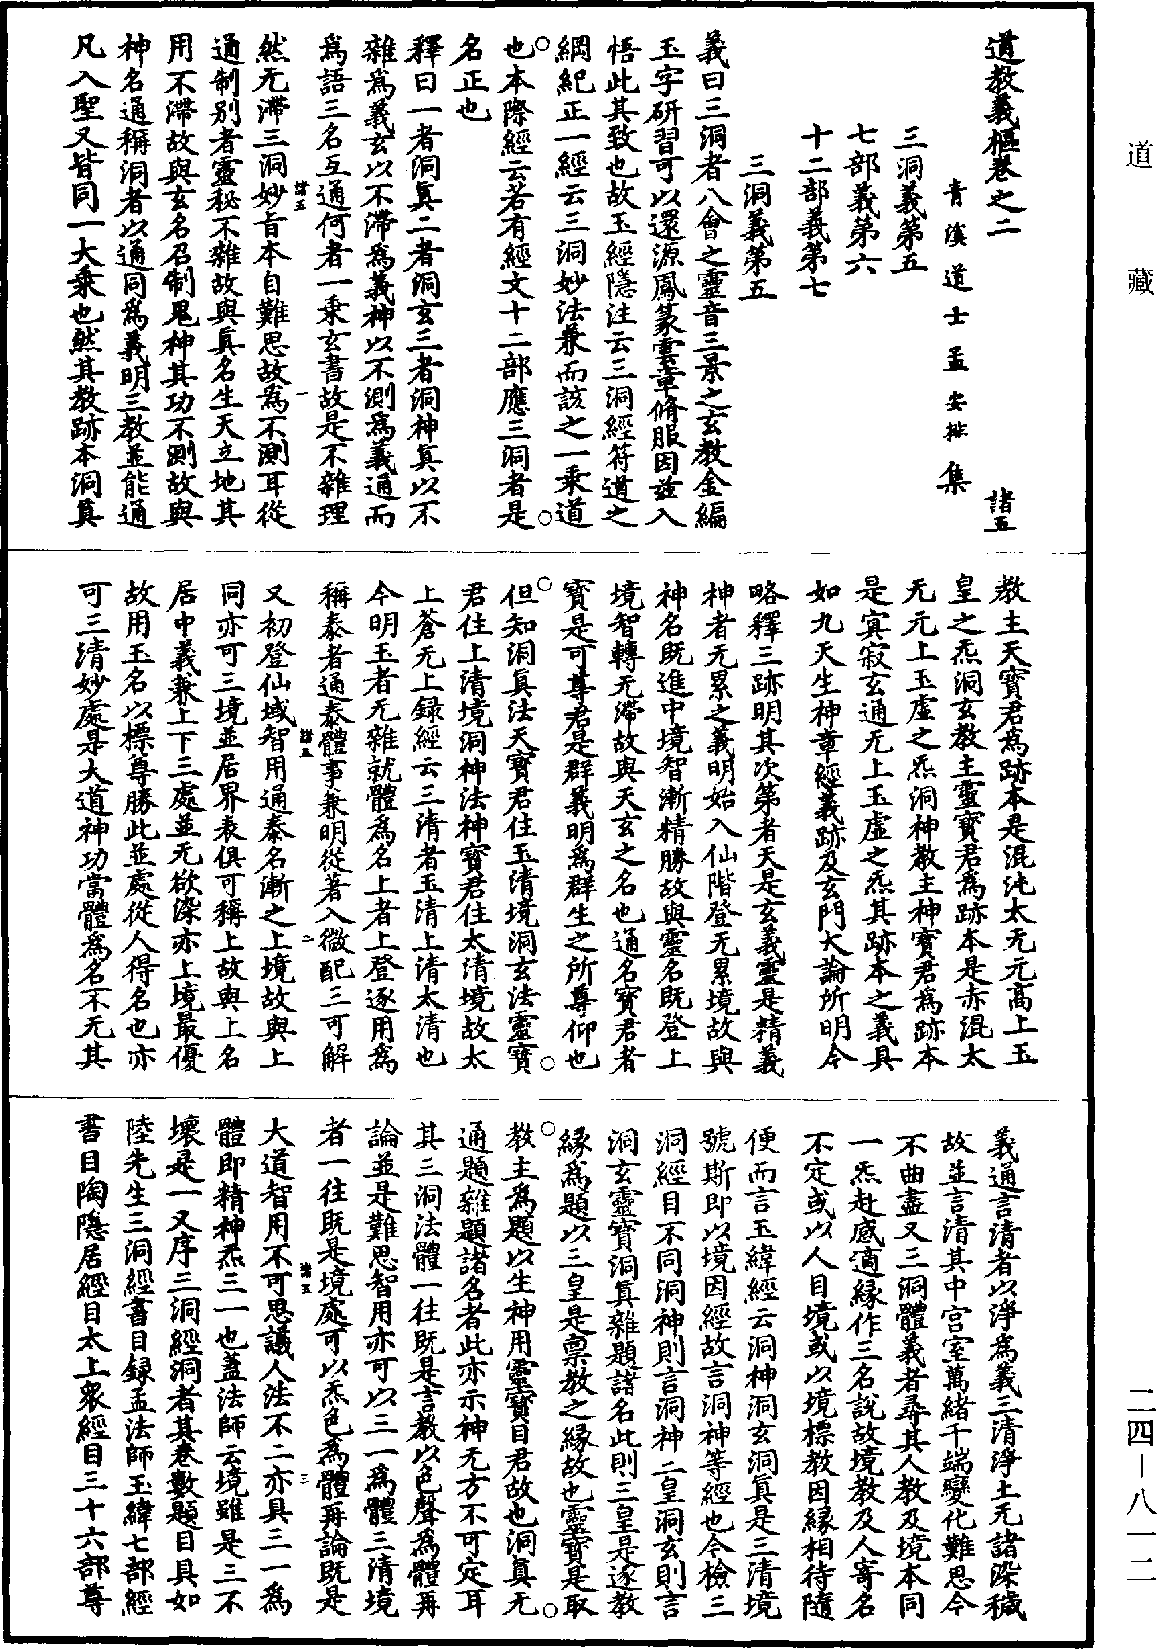 道藏
二四—八一二
道教義樞卷之二
諸五
青溪道士孟安排集
三洞義第五
七部義第六
十二部義第七
三洞義第五
義曰三洞者八會之靈音三景之玄教金編
玉字研習可以還源鳳篆雲章脩服因茲入
悟此其致也故玉經隱注云三洞經符道之
綱紀正一經云三洞妙法兼而該之一乘道
也本際經云若有經文十二部應三洞者是
名正也
釋曰一者洞真二者洞玄三者洞神真以不
雜為義玄以不滯為義神以不測為義通而
為語三名互通何者一乘玄書故是不雜理
諸五
一
然无滯三洞妙旨本自難思故為不測耳從
通制別者靈秘不雜故與真名生天立地其
用不滯故與玄名召制鬼神其功不測故與
神名通稱洞者以通同為義明三教並能通
凡入聖又皆同一大乘也然其教跡本洞真
教主天寶君為跡本是混沌太无元高上玉
皇之炁洞玄教主靈寶君為跡本是赤混太
无元上玉虛之炁洞神教主神寶君為跡本
是㝠寂玄通无上玉虛之炁其跡本之義具
如九天生神章經義跡及玄門大論所明今
略釋三跡明其次第者天是玄義靈是精義
神者无累之義明始入仙階登无累境故與
神名既進中境智漸精勝故與靈名既登上
境智轉无滯故與天玄之名也通名寶君者
寶是可尊君是群義明為群生之所尊仰也
但知洞真法天寶君住玉清境洞玄法靈寶
君住上清境洞神法神寶君住太清境故太
上蒼无上録經云三清者玉清上清太清也
今明玉者无雜就體為名上者上登逐用為
稱泰者通泰體事兼明從著入微配三可解
諸五
二
又初登仙域智用通泰名漸之上境故與上
同亦可三境並居界表俱可稱上故與上名
居中義兼上下三處並无欲染亦上境最優
故用玉名以標尊勝此並處從人得名也亦
可三清妙處是大道神功當體為名不无其
義通言清者以淨為義三清淨土无諸染穢
故並言清其中宮室萬緒千端變化難思今
不曲盡又三洞體義者尋其人教及境本同
一炁赴感適緣作三名說故境教及人寄名
不定或以人目境或以境標教因緣相待隨
便而言玉緯經云洞神洞玄洞真是三清境
號斯即以境因經故言洞神等經也今檢三
洞經目不同洞神則言洞神三皇洞玄則言
洞玄靈寶洞真雜題諸名此則三皇是逐教
緣為題以三皇是禀教之緣故也靈寶是取
教主為題以生神用靈寶目君故也洞真无
通題雜題諸名者此亦示神无方不可定耳
其三洞法體一往既是言教以色聲為體再
論並是難思智用亦可以三一為體三清境
者一往既是境處可以炁色為體再論既是
諸五
三
大道智用不可思議人法不二亦具三一為
體即精神炁三一也蓋法師云境雖是三不
壞是一又序三洞經洞者其卷數題目具如
陸先生三洞經書目録孟法師玉緯七部經
書目陶隱居經目太上眾經目三十六部尊